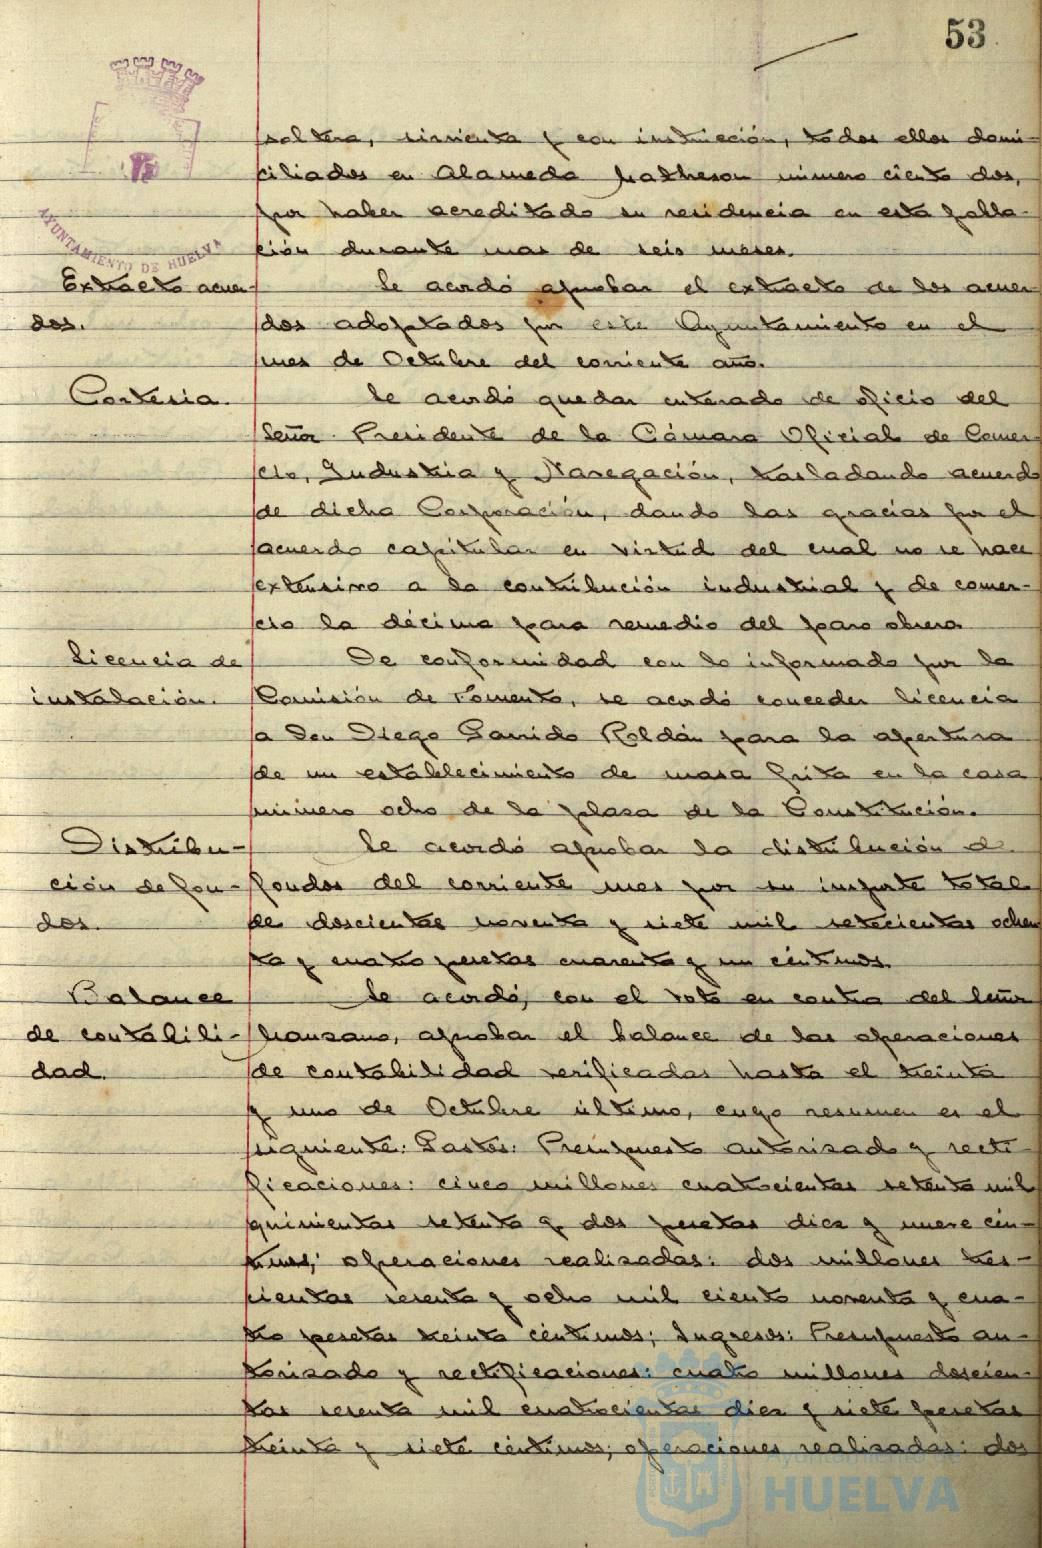 53
AYUNTAMIENTO DE HUELVA
soltera, sirvienta y con instrucción, todos ellos domi-
ciliados en Alameda Matheson número ciento dos,
por haber acreditado su residencia en esta pobla-
ción durante mas de seis meses.
Extracto acuer-
dos.
Se acordó aprobar el extracto de los acuer
dos adoptados por este Ayuntamiento en el
mes de Octubre del corriente año.
Cortesia.
Se acordó quedar enterado de oficio del
Señor Presidente de la Cámara Oficial de Comer-
cio, Industria y Navegación, trasladando acuerdo
de dicha Corporación, dando las gracias por el
acuerdo capitular en virtud del cual no se hace
extensivo a la contribución industrial y de comer-
cio la décima para remedio del paro obrero
Licencia de
instalación.
De conformidad con lo informado por la
Comisión de Fomento, se acordó conceder licencia
a Don Diego Garrido Roldán para la apertura
de un establecimiento de masa frita en la casa
número ocho de la plaza de la Constitución.
Distribu-
ción de fon-
dos.
Se acordó aprobar la distribución de
fondos del corriente mes por su importe total
de doscientas noventa y siete mil setecientas ochen
ta y cuatro pesetas cuarenta y un céntimos.
Balance
de contabili-
dad.
Se acordó, con el voto en contra del Señor
Manzano, aprobar el balance de las operaciones
de contabilidad verificadas hasta el treinta
y uno de Octubre último, cuyo resumen es el
siguiente: Gastos: Presupuesto autorizado y recti-
ficaciones: cinco millones cuatrocientas setenta mil
quinientas setenta y dos pesetas diez y nueve cén-
timos; operaciones realizadas: dos millones tres-
cientas sesenta y ocho mil ciento noventa y cua-
tro pesetas treinta céntimos; Ingresos: Presupuesto au-
torizado y rectificaciones: cuatro millones doscien-
tas sesenta mil cuatrocientas diez y siete pesetas
treinta y siete céntimos; operaciones realizadas: dos
Ayuntamiento de
HUELVA